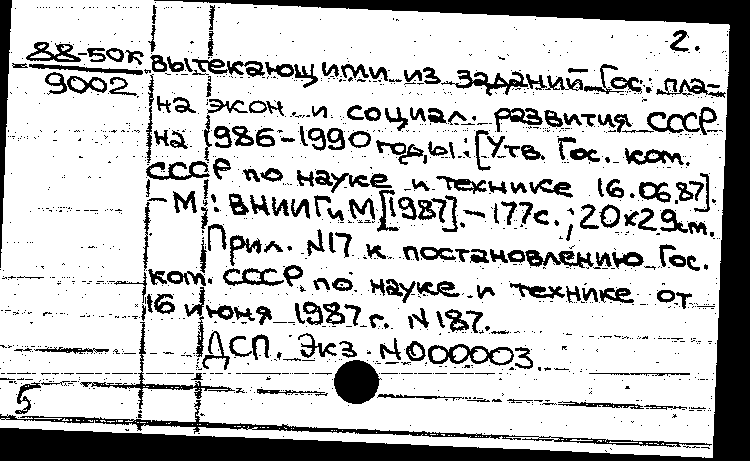 2.
88-50к
9002
вытекающими из заданий Гос. пла-
на экон. и социал. развития СССР
на 1986-1990 годы: [Утв. Гос. ком.
СССР по науке и технике 16.06.87].
- М.: ВНИИГиМ, [1987]. - 177с.; 20х29см.
Прил. N17 к постановлению Гос.
ком. СССР по науке и технике от
16 июня 1987г. N187.
ДСП. Экз. N000003.
5